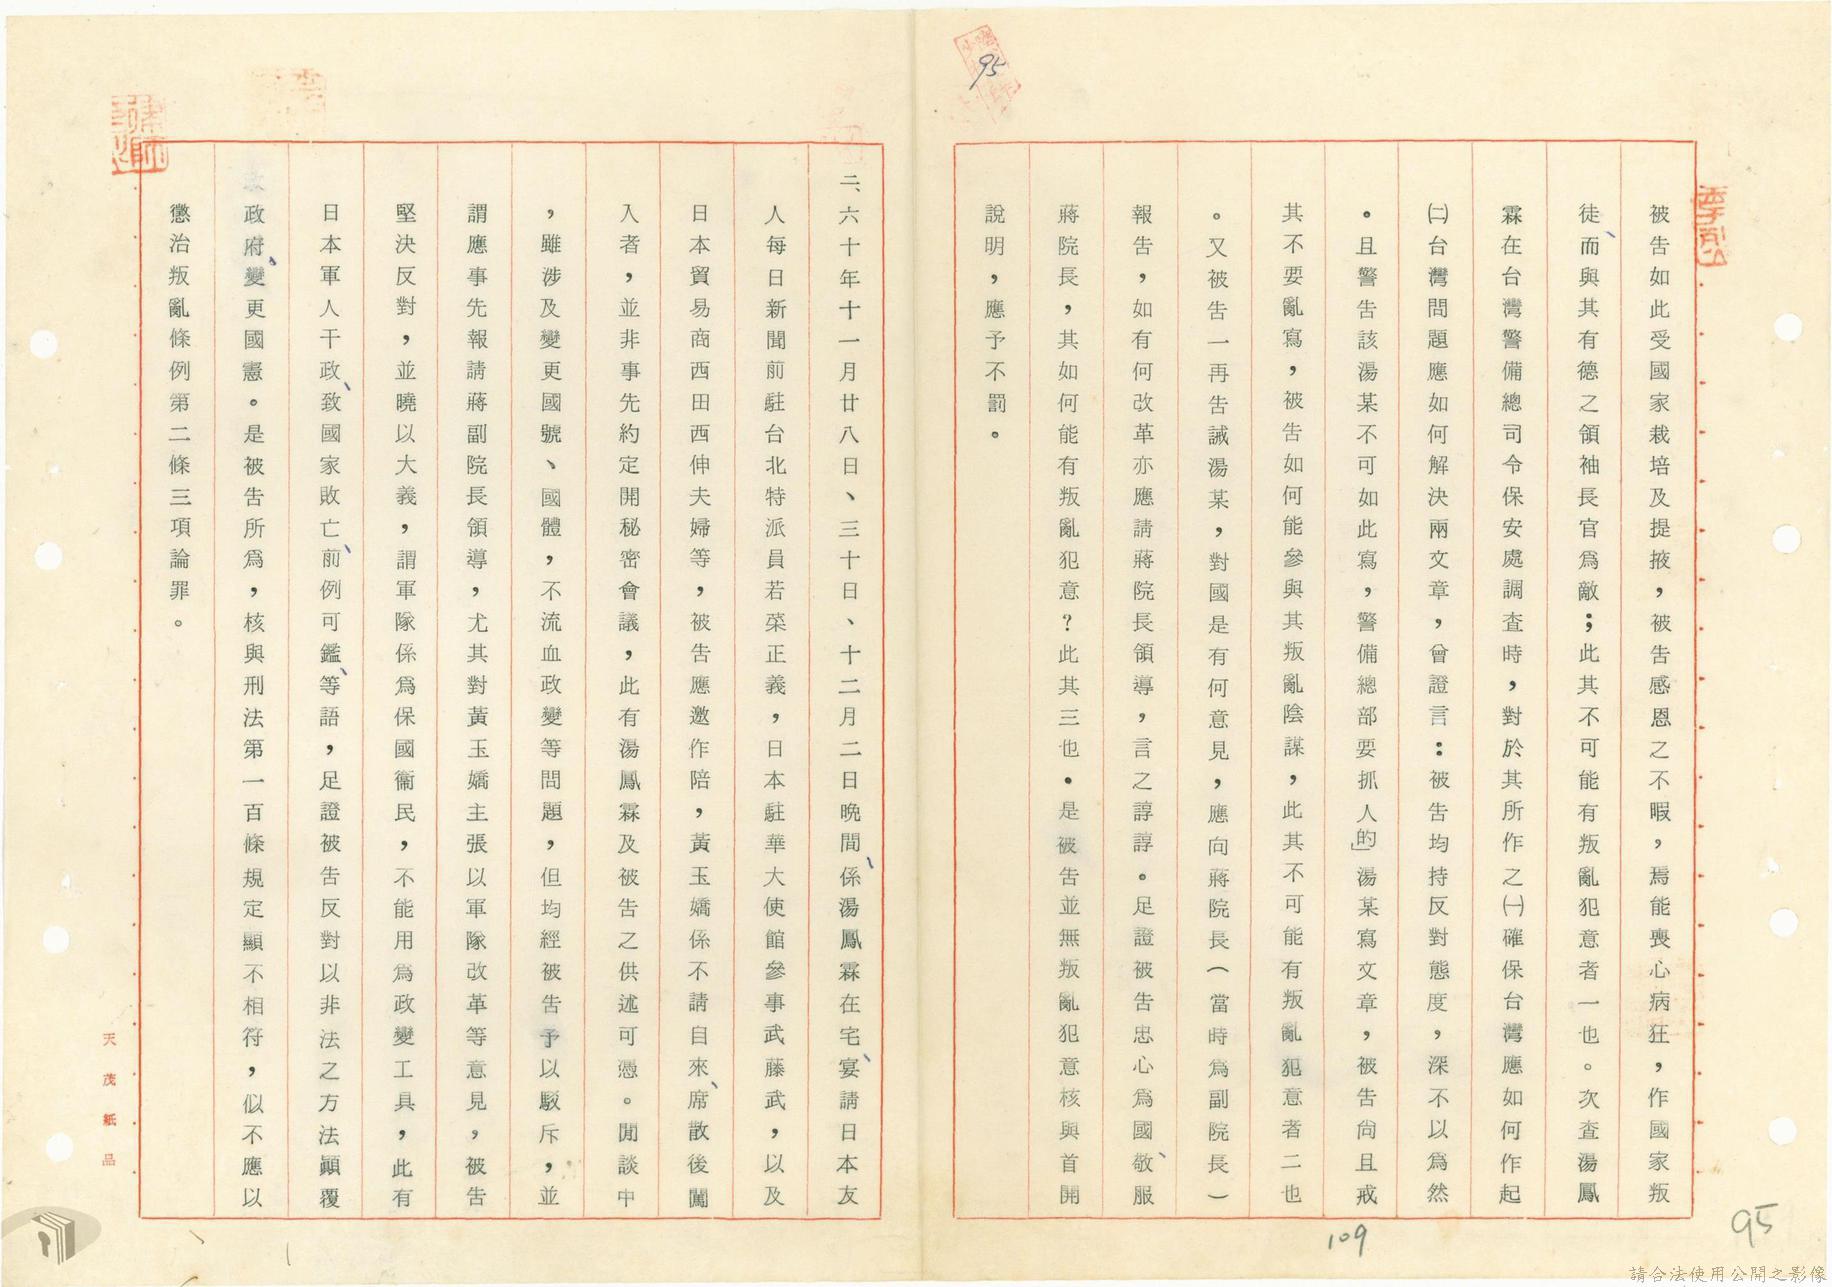 95
被告如此受國家栽培及提掖，被告感恩之不暇，焉能喪心病狂，作國家叛
徒而與其有德之領袖長官為敵；此其不可能有叛亂犯意者一也。次查湯鳳
霖在台灣警備總司令保安處調查時，對於其所作之㈠確保台灣應如何作起
㈡台灣問題應如何解決兩文章，曾證言：被告均持反對態度，深不以為然
。且警告該湯某不可如此寫，警備總部要抓人的」湯某寫文章，被告尚且戒
其不要亂寫，被告如何能參與其叛亂陰謀，此其不可能有叛亂犯意者二也
。又被告一再告誡湯某，對國是有何意見，應向蔣院長（當時為副院長）
報告，如有何改革亦應請蔣院長領導，言之諄諄。足證被告忠心為國敬服
蔣院長，其如何能有叛亂犯意？此其三也。是被告並無叛亂犯意核與首開
說明，應予不罰。
二、六十年十一月廿八日、三十日、十二月二日晚間係湯鳳霖在宅宴請日本友
人每日新聞前駐台北特派員若菜正義，日本駐華大使館參事武藤武，以及
日本貿易商西田西伸夫婦等，被告應邀作陪，黃玉嬌係不請自來席散後闖
入者，並非事先約定開秘密會議，此有湯鳳霖及被告之供述可憑。閒談中
，雖涉及變更國號、國體，不流血政變等問題，但均經被告予以駁斥，並
謂應事先報請蔣副院長領導，尤其對黃玉嬌主張以軍隊改革等意見，被告
堅決反對，並曉以大義，謂軍隊係為保國衞民，不能用為政變工具，此有
日本軍人干政、致國家敗亡前例可鑑等語，足證被告反對以非法之方法顛覆
政府變更國憲。是被告所為，核與刑法第一百條規定顯不相符，似不應以
懲治叛亂條例第二條三項論罪。
天茂紙品
109
95
請合法使用公開之影像